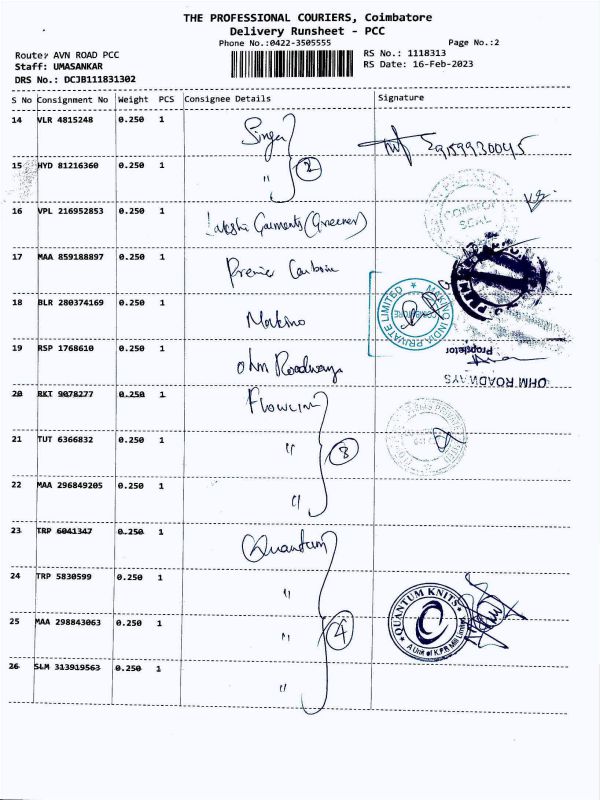 THE PROFESSIONAL COURIERS, Coimbatore
Delivery Runsheet - PCC
Phone No.:0422-3505555
Page No.:2
Route: AVN ROAD PCC
RS No.: 1118313
Staff: UMASANKAR
RS Date: 16-Feb-2023
DRS No.: DCJB111831302
S No Consignment No Weight PCS Consignee Details Signature
14 VLR 4815248 0.250 1 Singer
15 HYD 81216360 0.250 1 " 2
16 VPL 216952853 0.250 1 Lakshi Garments (Greener)
17 MAA 859188897 0.250 1 Premier Carbon
18 BLR 280374169 0.250 1 Makino
MAKINO INDIA PRIVATE LIMITED
19 RSP 1768610 0.250 1 Ohm Roadways
Proprietor
OHM ROADWAYS
20 RKT 9078277 0.250 1
21 TUT 6366832 0.250 1 " 3
22 MAA 296849205 0.250 1 "
23 TRP 6041347 0.250 1 Quantum
24 TRP 5830599 0.250 1 "
25 MAA 298843063 0.250 1 " 4
QUANTUM KNITS
A Unit of K.P.R Mill Limited
26 SLM 313919563 0.250 1 "